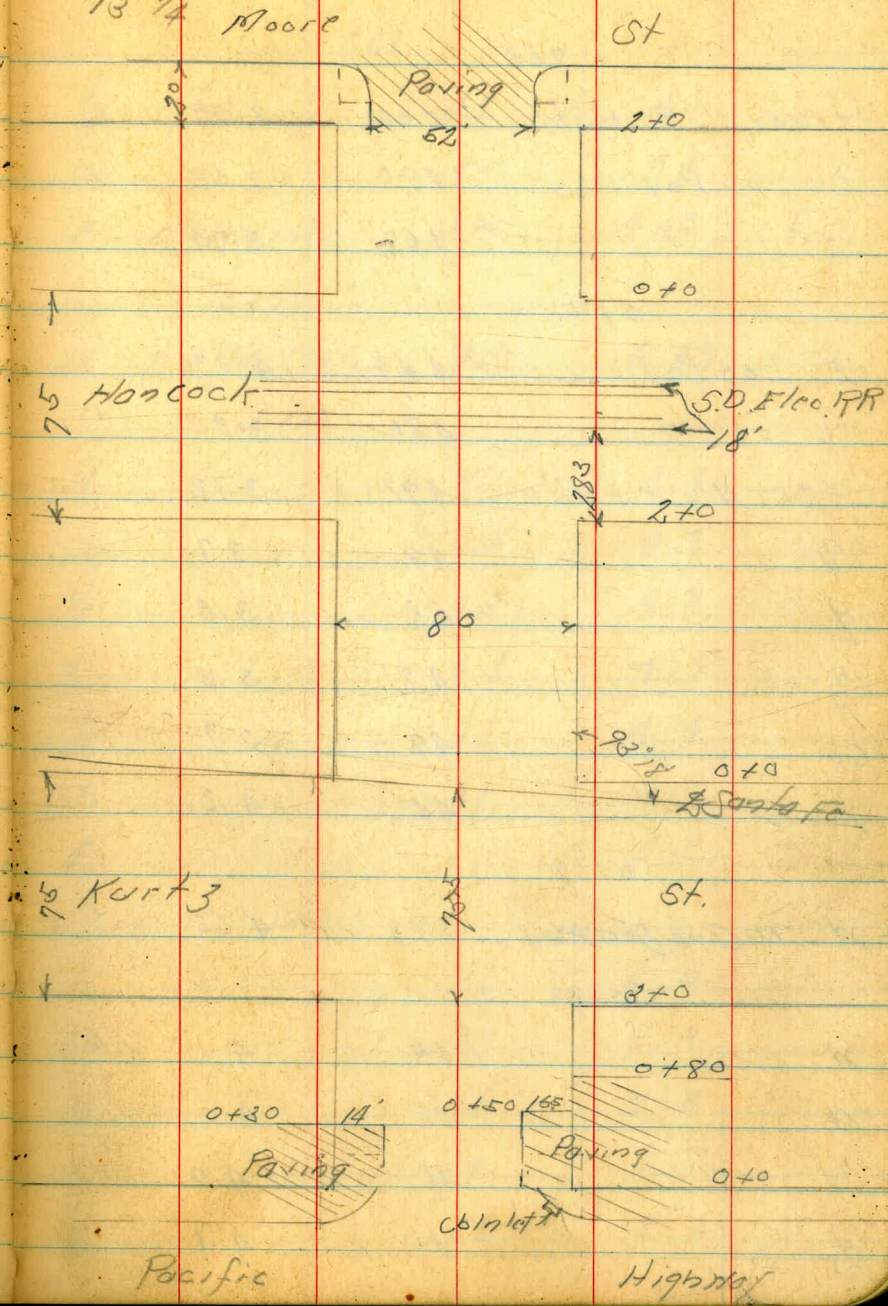 13 1/4
Moore St
20
Paving
52'
2+0
0+0
75
Hancock
S.D. Elec. RR
18'
283
2+0
80
93°18'
0+0
℄ Santa Fe
75
Kurtz St.
3+0
0+80
0+30
14'
0+50
165
Paving
Paving
0+0
Cb inlet
Pacific Highway